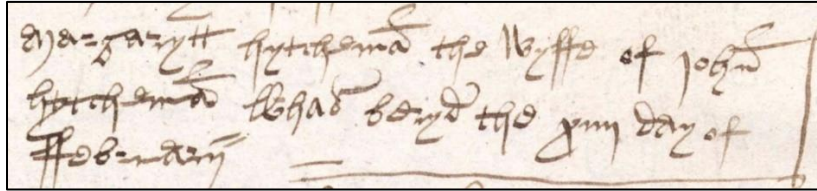 Margarytt hytchemā the Wyffe of John̄
hytchemā Whas beryd the xiiij day of
ffebruarij